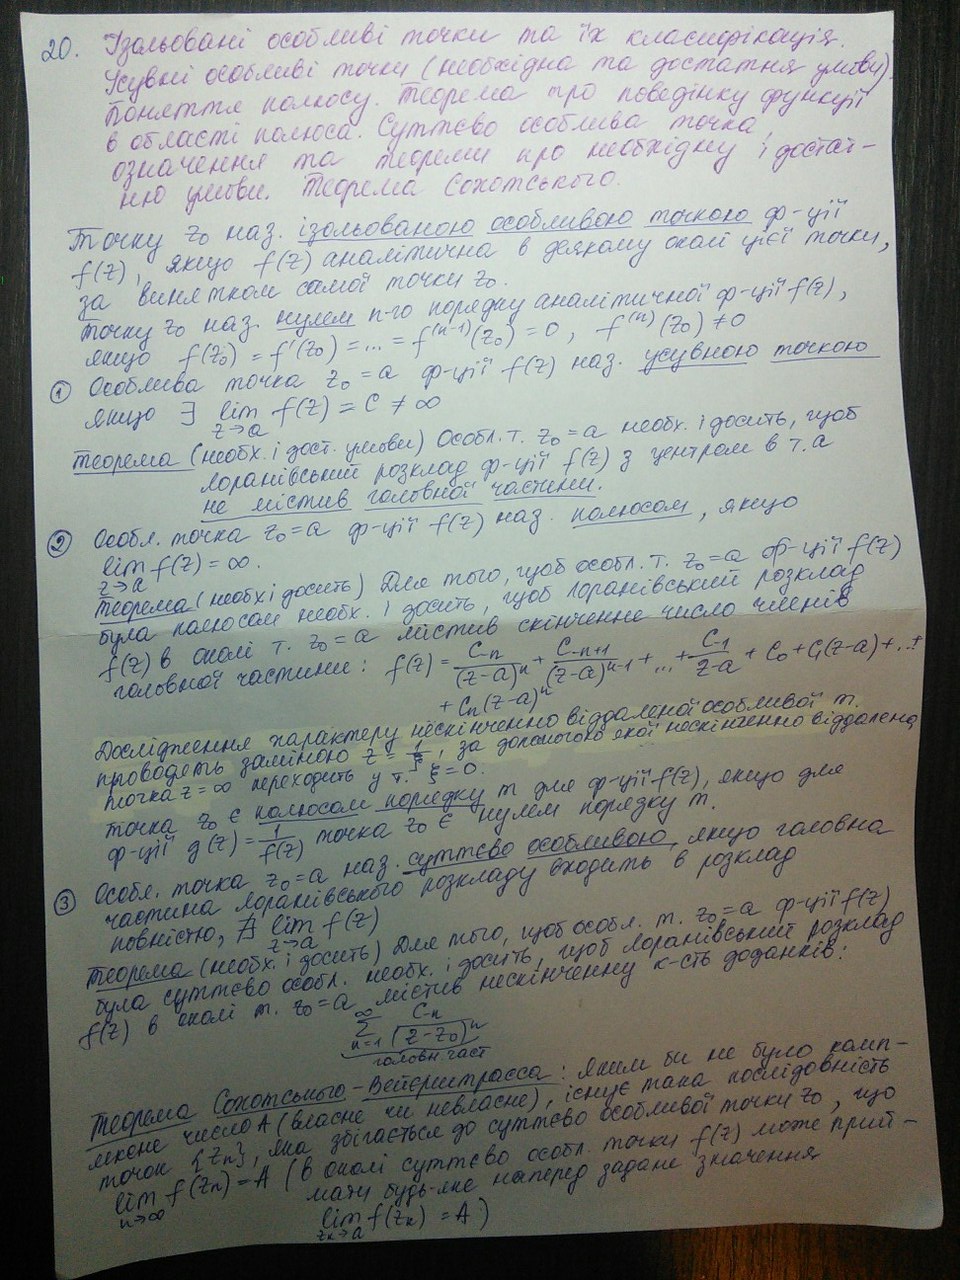 20. Ізольовані особливі точки та їх класифікація.
Усувні особливі точки (необхідна та достатня умови)
Поняття полюсу. Теорема про поведінку функції
в області полюса. Суттєво особлива точка,
означення та теореми про необхідну і достат-
ню умови. Теорема Сохотського.
Точку z₀ наз. ізольованою особливою точкою ф-ції
f(z), якщо f(z) аналітична в деякому околі цієї точки,
за винятком самої точки z₀.
Точку z₀ наз. нулем n-го порядку аналітичної ф-ції f(z),
якщо f(z₀) = f'(z₀) = ... = f⁽ⁿ⁻¹⁾(z₀) = 0, f⁽ⁿ⁾(z₀) ≠ 0
① Особлива точка z₀ = a ф-ції f(z) наз. усувною точкою
якщо ∃ lim f(z) = C ≠ ∞
z→a
Теорема (необх. і дост. умови) Особл. т. z₀ = a необх. і досить, щоб
Лоранівський розклад ф-ції f(z) з центром в т. a
не містив головної частини.
② Особл. точка z₀ = a ф-ції f(z) наз. полюсом, якщо
lim f(z) = ∞.
z→a
Теорема (необх і досить) Для того, щоб особл. т. z₀ = a ф-ції f(z)
була полюсом необх. і досить, щоб Лоранівський розклад
f(z) в околі т. z₀ = a містив скінченне число членів
головної частини: f(z) = C₋ₙ/(z-a)ⁿ + C₋ₙ₊₁/(z-a)ⁿ⁻¹ + ... + C₋₁/(z-a) + C₀ + C₁(z-a) + ... +
+ Cₙ(z-a)ⁿ
Дослідження характеру нескінченно віддаленої особливої т.
проводять заміною z = 1/ξ, за допомогою якої нескінченно віддалена
точка z = ∞ переходить у т. ξ = 0.
Точка z₀ є полюсом порядку m для ф-ції f(z), якщо для
ф-ції g(z) = 1/f(z) точка z₀ є нулем порядку m.
③ Особл. точка z₀ = a наз. суттєво особливою, якщо головна
частина Лоранівського розкладу входить в розклад
повністю, ∄ lim f(z)
z→a
Теорема (необх. і досить) Для того, щоб особл. т. z₀ = a ф-ції f(z)
була суттєво особл. необх. і досить, щоб Лоранівський розклад
f(z) в околі т. z₀ = a містив нескінченну к-сть доданків:
∞
∑ C₋ₙ/(z-z₀)ⁿ
n=1
головн. част
Теорема Сохотського-Вейерштрасса: Яким би не було комп-
лексне число A (власне чи невласне), існує така послідовність
точок {zₙ}, яка збігається до суттєво особливої точки z₀, що
lim f(zₙ) = A (в околі суттєво особл. точки f(z) може прий-
n→∞
мати будь-яке наперед задане значення
lim f(zₙ) = A)
zₙ→a